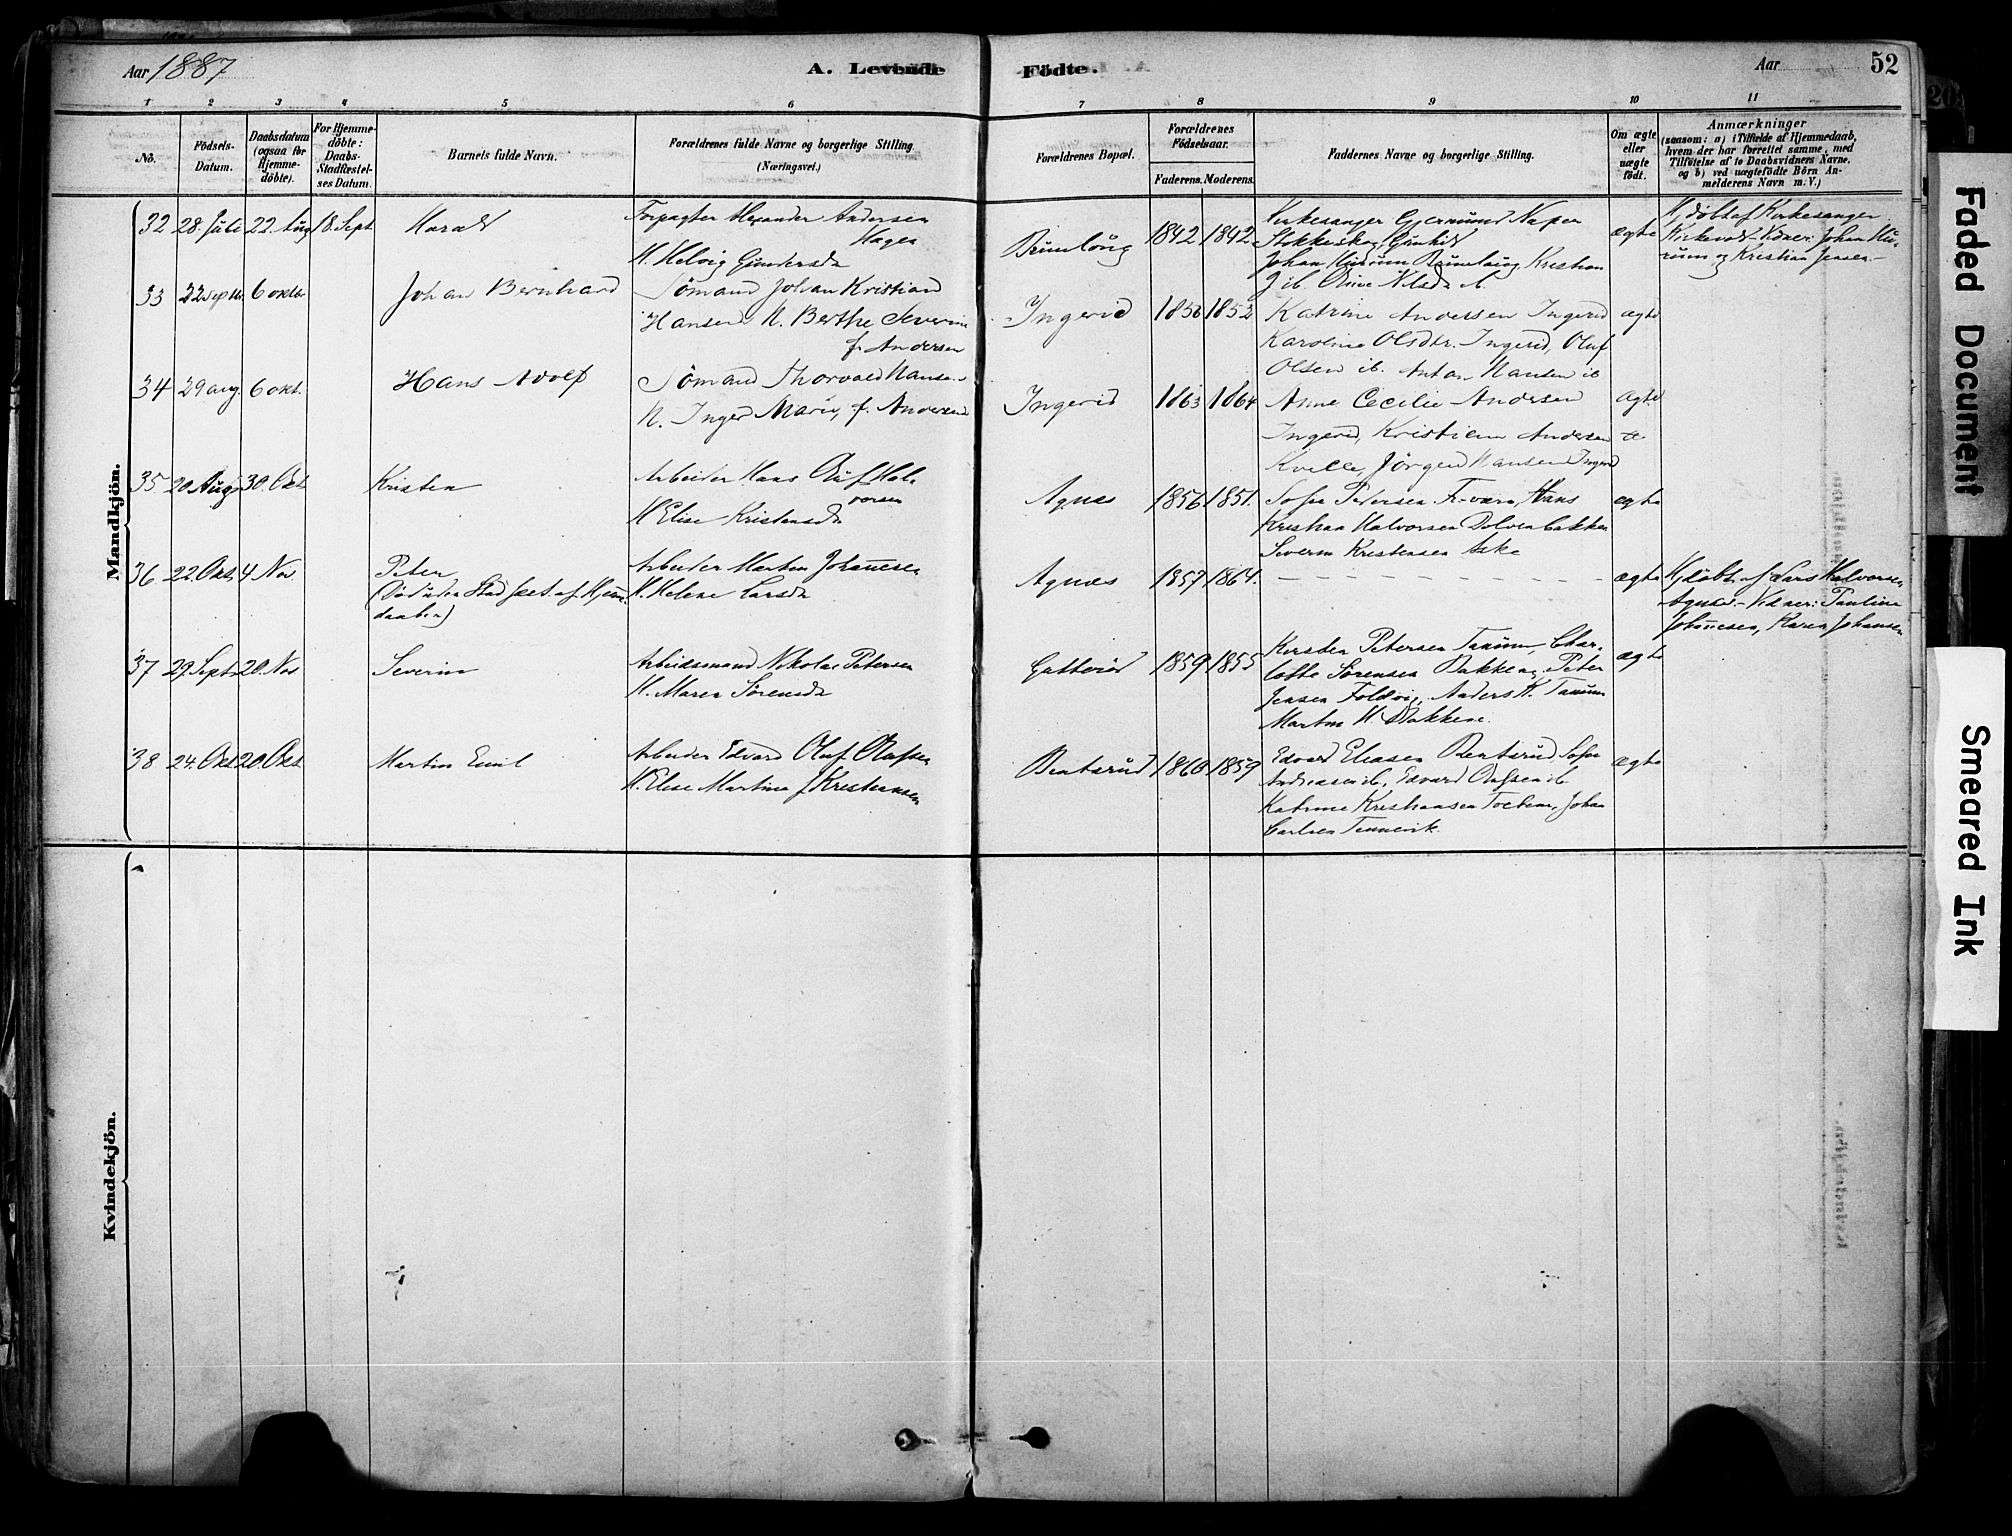 Aar 1887
A. Levende Födte.
Aar
52
1 2 3 4 5 6 7 8 9 10 11
No.
Födsels-Datum.
Daabsdatum (ogsaa for Hjemme-döbte).
For Hjemme-döbte: Daabs-Stadfæstel-ses Datum.
Barnets fulde Navn.
Forældrenes fulde Navne og borgerlige Stilling. (Næringsvei.)
Forældrenes Bopæl.
Forældrenes Födselsaar.
Faderens. Moderens.
Faddernes Navne og borgerlige Stilling.
Om ægte eller uægte födt.
Anmærkninger
(saasom: a) i Tilfælde af Hjemmedaab, hvem der har forrettet samme, med Tilföielse af to Daabsvidners Navne, og b) ved uægtefödte Börn Anmelderens Navn m. V.)
Mandkjön.
32 28. Juli 22. Aug 18. Sept Harald
Forpagter Alexander Andersen
Hagen
H. Helvig Gundersdr
Brunlaug 1842 1842
Kirkesanger Gjermund
Stokkeskog, Gunhild
Johan Brunlaug, Kristian
J ib. Oline Nilsdr ib.
ægte
Hjdöbt af Kirkesanger
Kirkevold. Vidner: Johan
og Kristian Jensen
33 22 sept. 6 oktbr Johan Bernhard
Sömand Johan Kristian
Hansen H. Berthe Severine
f. Andersen
Ingerid 1856 1852
Katrine Anderssen Ingerid
Karoline Olsdtr. Ingerid, Oluf
Olsen ib. Anton Hansen ib
ægte
34 29 aug. 6 okt. Hans Adolf
Sömand Thorvald Hansen
H. Inger Marie f. Andersen
Ingerid 1863 1864
Anne Cecilie Andersen
Ingerid, Kristian Andersen
Kvelle, Jörgen Hansen Ingerid
ægte
35 20 Aug 30. Okt Kristen
Arbeider Hans Oluf Hal-
vorsen
H Elise Kristensdr
Agnes 1856 1851.
Sofie Pedersen Hans
Kristian Halvorsen Dolvenbakken
Severin Kristensen Aske
ægte
36 22. Okt 4 Nov Peter
(Död uden Stadfæt. af Hjem-
daaben)
Arbeider Martin Johannesen
H. Helene Larsdr
Agnes 1857 1864.
ægte
Hjdöbt af Lars Halvorsen
Agnes. - Vidner: Pauline
Johannesen, Karen Johansen
37 29. Sept 20. Nov Severin
Arbeidsmand Nikolai Petersen
H. Maren Sörensdr
1859 1855
Kirsten Petersen Tanum, Char-
lotte Sörensen Bakkene, Peter
Jensen Foldvig, Anders K. Tanum
Martin H. Bakkene.
ægte
38 24. Okt 20. Okt Martin Emil
Arbeider Edvard Oluf Olafsen
H. Elise Martine f Kristiansen
Bentsrud 1860 1859
Edvard Eliasen Bentsrud, Sofie
Andreasen ib., Edvard Olafsen ib
Katrine Kristiansen Johan
Carlsen Tennevik.
ægte
Kvindekjön.
Faded Document
Smeared Ink